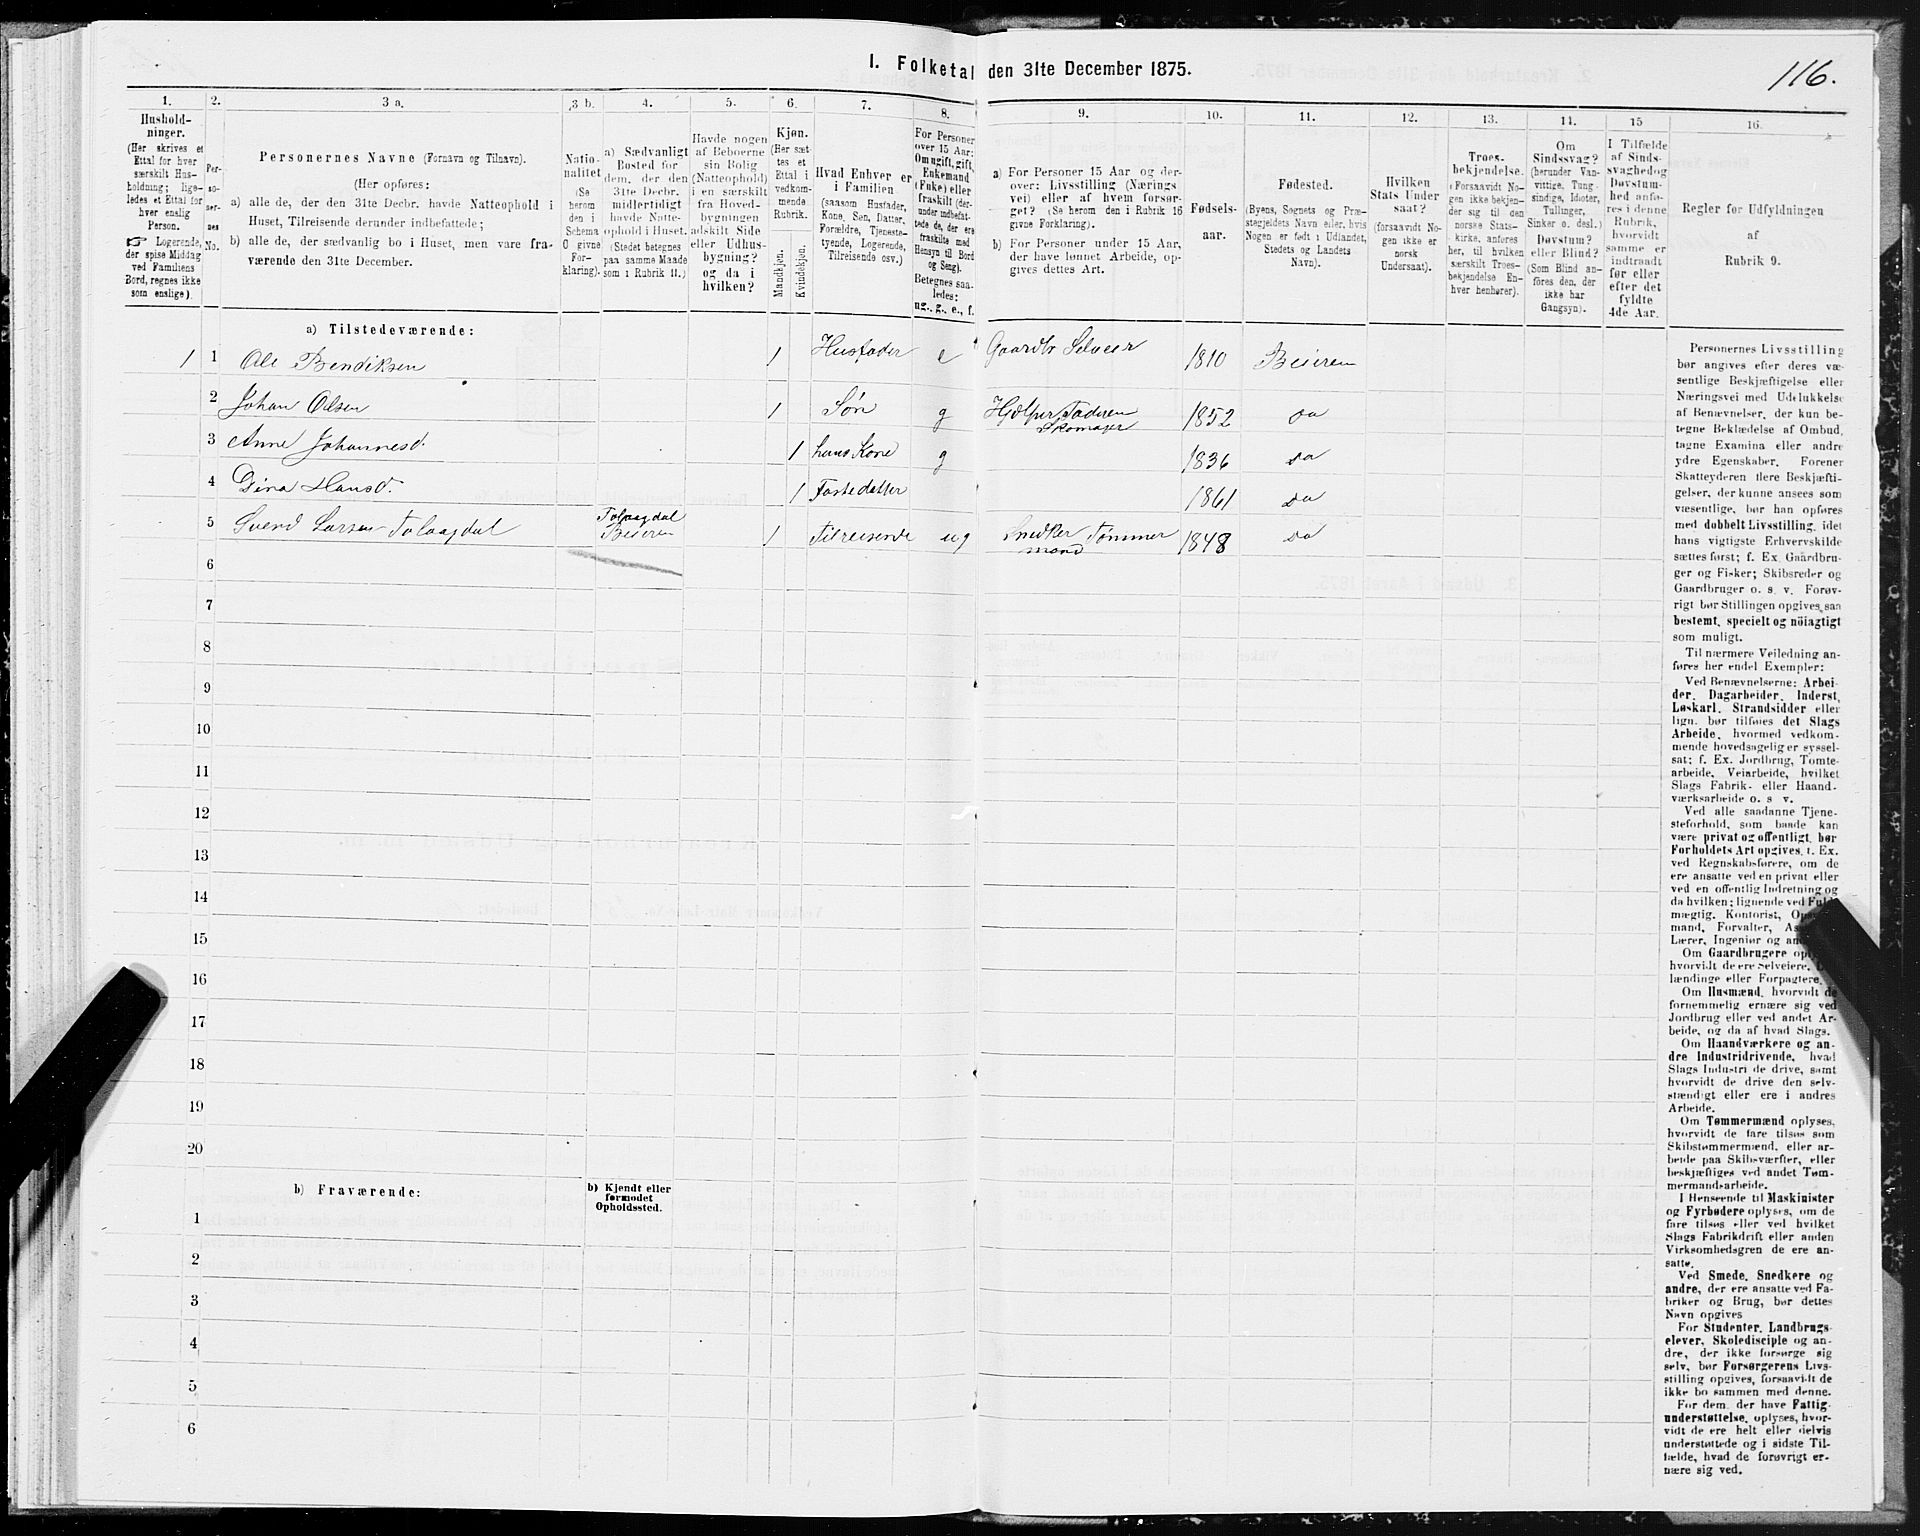 1. Folketal den 31te December 1875.
116.
1.
2.
3 a.
3 b.
4.
5.
6.
7.
8.
9.
10.
11.
12.
13.
14.
15
16.
Hushold-
ninger.
(Her skrives et
Ettal for hver
særskilt Hus-
holdning; lige-
ledes et Ettal for
hver enslig
Person.
☞ Logerende,
der spise Middag
ved Familiens
Bord, regnes ikke
som enslige).
Per-
so-
ner-
nes
No.
Personernes Navne (Fornavn og Tilnavn).
(Her opføres:
a) alle de, der den 31te Decbr. havde Natteophold i
Huset, Tilreisende derunder indbefattede;
b) alle de, der sædvanlig bo i Huset, men vare fra-
værende den 31te December.
Natio-
nalitet
(Se
herom
den i
Schema
O givne
For-
klaring).
a) Sædvanligt
Bosted for
dem, der den
31te Decbr.
midlertidigt
havde Natte-
ophold i Huset.
(Stedet betegnes
paa samme Maade
som i Rubrik 11.)
Havde nogen
af Beboerne
sin Bolig
(Natteophold)
i en særskilt
fra Hoved-
bygningen
adskilt Side
eller Udhus-
bygning?
og da i
hvilken?
Kjøn.
(Her sæt-
tes et
Ettal i
vedkom-
mende
Rubrik.
Mandkjøn.
Kvindekjøn.
Hvad Enhver er
i Familien
(saasom Husfader,
Kone, Søn, Datter,
Forældre, Tjeneste-
tyende, Logerende,
Tilreisende osv.)
For Personer
over 15 Aar:
Om ugift, gift,
Enkemand
(Enke) eller
fraskilt (der-
under indbefat-
tede de, der ere
fraskilte med
Hensyn til Bord
og Seng).
Betegnes saa-
ledes:
ug., g., e., f.
a) For Personer 15 Aar og der-
over: Livsstilling (Nærings-
vei) eller af hvem forsør-
get? (Se herom den i Rubrik 16
givne Forklaring).
b) For Personer under 15 Aar,
der have lønnet Arbeide, op-
gives dettes Art.
Fødsels-
aar.
Fødested.
(Byens, Sognets og Præ-
stegjeldets Navn eller, hvis
Nogen er født i Udlandet,
Stedets og Landets
Navn).
Hvilken
Stats Under
saat?
(forsaavidt No-
gen ikke er
norsk
Undersaat).
Troes-
bekjendelse.
(Forsaavidt No-
gen ikke bekjen-
der sig til den
norske Stats-
kirke, anføres
her, til hvilken
særskilt Troes-
bekjendelse En-
hver henhører).
Om
Sindssvag?
(herunder Van-
vittige, Tung-
sindige, Idioter,
Tullinger,
Sinker o. desl.)
Døvstum?
eller Blind?
(Som Blind an-
føres den, der
ikke har
Gangsyn).
I Tilfælde
af Sinds-
svaghed og
Døvstum-
hed anfø-
res i denne
Rubrik,
hvorvidt
samme er
indtraadt
før eller
efter det
fyldte
4de Aar.
Regler for Udfyldningen
af
Rubrik 9.
a) Tilstedeværende:
1 1 Ole Bendiksen 1 Husfader e Gaardbr Selveier 1810 Beieren
2 Johan Olsen 1 Søn g Hjelper Faderen Skomager 1852 do
3 Anne Johannesd. 1 hans Kone g 1836 do
4 Gina Hansd. 1 Fostedatter 1861 do
5 Svend Larsen Tolaagdal Tolaagdal Beieren 1 Tilreisende ug Snedker Tømmer mand 1848 do
6
7
8
9
10
11
12
13
14
15
16
17
18
19
20
b) Fraværende:
b) Kjendt eller
formodet
Opholdssted.
1
2
3
4
5
6
Personernes Livsstilling
bør angives efter deres væ-
sentlige Beskjæftigelse eller
Næringsvei med Udelukkelse
af Benævnelser, der kun be-
tegne Beklædelse af Ombud,
tagne Examina eller andre
ydre Egenskaber. Forener
Skatteyderen flere Beskjæfti-
gelser, der kunne ansees som
væsentlige, bør han opføres
med dobbelt Livsstilling, idet
hans vigtigste Erhvervskilde
sættes først; f. Ex. Gaardbru-
ger og Fisker; Skibsreder og
Gaardbruger o. s. v. Forøv-
rigt bør Stillingen opgives saa
bestemt, specielt og nöiagtigt
som muligt.
Til nærmere Veiledning an-
føres her endel Exempler:
Ved Benævnelserne: Arbei-
der, Dagarbeider, Inderst,
Løskarl, Strandsidder eller
lign. bør tilføies det Slags
Arbeide, hvormed vedkom-
mende hovedsagelig er syssel-
sat; f. Ex. Jordbrug, Tomte-
arbeide, Veiarbeide, hvilket
Slags Fabrik- eller Haand-
værksarbeide o. s v.
Ved alle saadanne Tjene-
steforhold, som baade kan
være privat og offentligt, bør
Forholdets Art opgives, f. Ex.
ved Regnskabsførere, om de
ere ansatte ved en privat eller
ved en offentlig Indretning og
da hvilken; lignende ved Fuld-
mægtig, Kontorist,
mand, Forvalter,
Lærer, Ingeniør og
Om Gaardbrugere
hvorvidt de ere Selveiere,
lændinge eller Forpagtere.
Om Husmænd, hvorvidt de
fornemmelig ernære sig ved
Jordbrug eller ved andet Ar-
beide, og da af hvad Slags.
Om Haandværkere og an-
dre Industridrivende, hvad
Slags Industri de drive, samt
hvorvidt de drive den selv-
stændigt eller ere i andres
Arbeide.
Om Tømmermænd oplyses,
hvorvidt de fare tilsøs som
Skibstømmermænd, eller ar-
beide paa Skibsværfter, eller
beskjæftiges ved andet Tøm-
mermandsarbeide.
I Henseende til Maskinister
og Fyrbødere oplyses, om de
fare tilsøs eller ved hvilket
Slags Fabrikdrift eller anden
Virksomhedsgren de ere an-
satte.
Ved Smede, Snedkere og
andre, der ere ansatte ved Fa-
briker og Brug, bør dettes
Navn opgives
For Studenter, Landbrugs-
elever, Skoledisciple og an-
dre, der ikke forsørge sig
selv, bør Forsørgerens Livs-
stilling opgives, forsaavidt de
ikke bo sammen med denne.
For dem, der have Fattig-
understøttelse, oplyses, hvor-
vidt de ere helt eller delvis
understøttede og i sidste Til-
fælde, hvad de forøvrigt er-
nære sig ved.